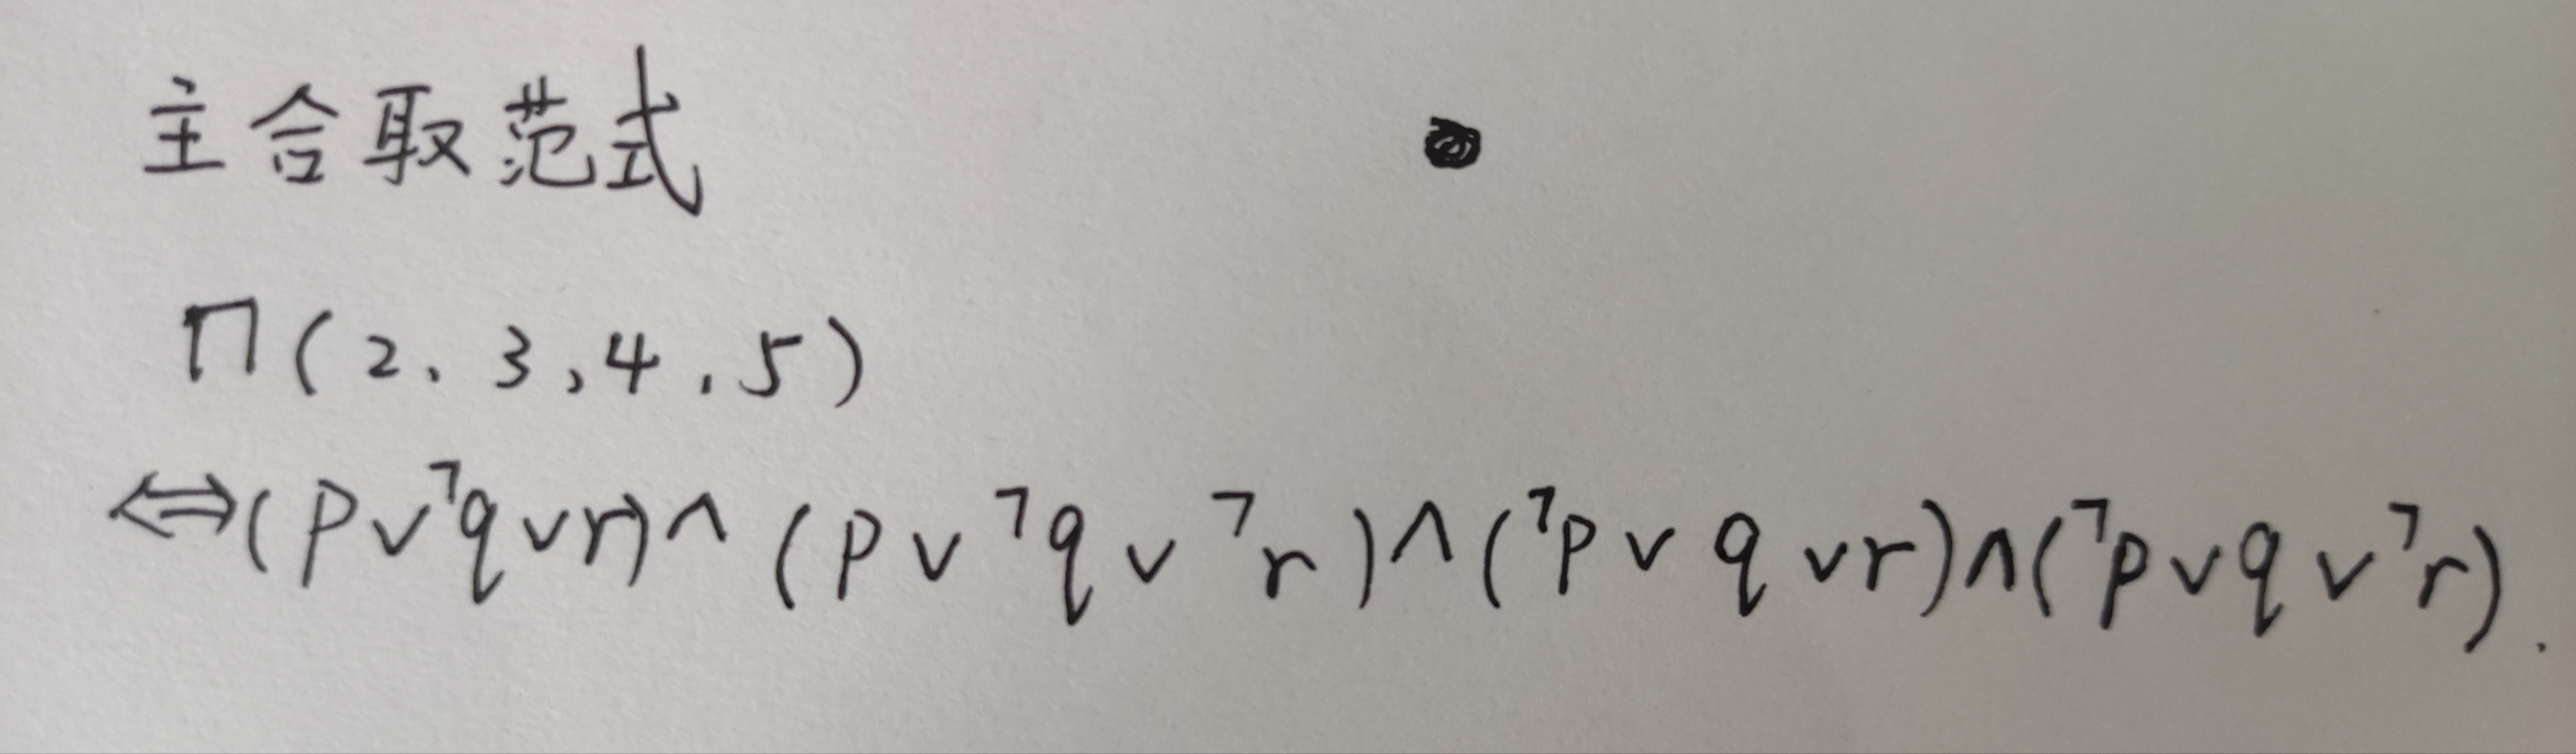 主合取范式
Π(2、3,4,5)
⇔(p∨¬q∨r)∧(p∨¬q∨¬r)∧(¬p∨q∨r)∧(¬p∨q∨¬r).